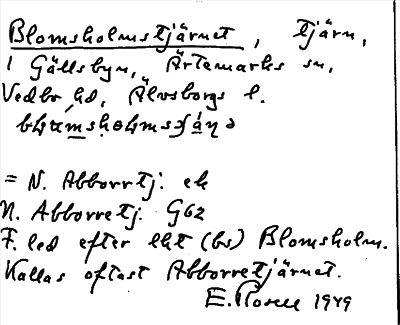 Blomsholmstjärnet, tjärn,
i Gällsbyn, Ärtemarks sn,
Vedbo hd, Älvsborgs l.
= N. Abborrtj. ek
N. Abborretj. G62
F. led efter lht (bs) Blomsholm.
Kallas oftast Abborretjärnet.
E. Rosell 1949